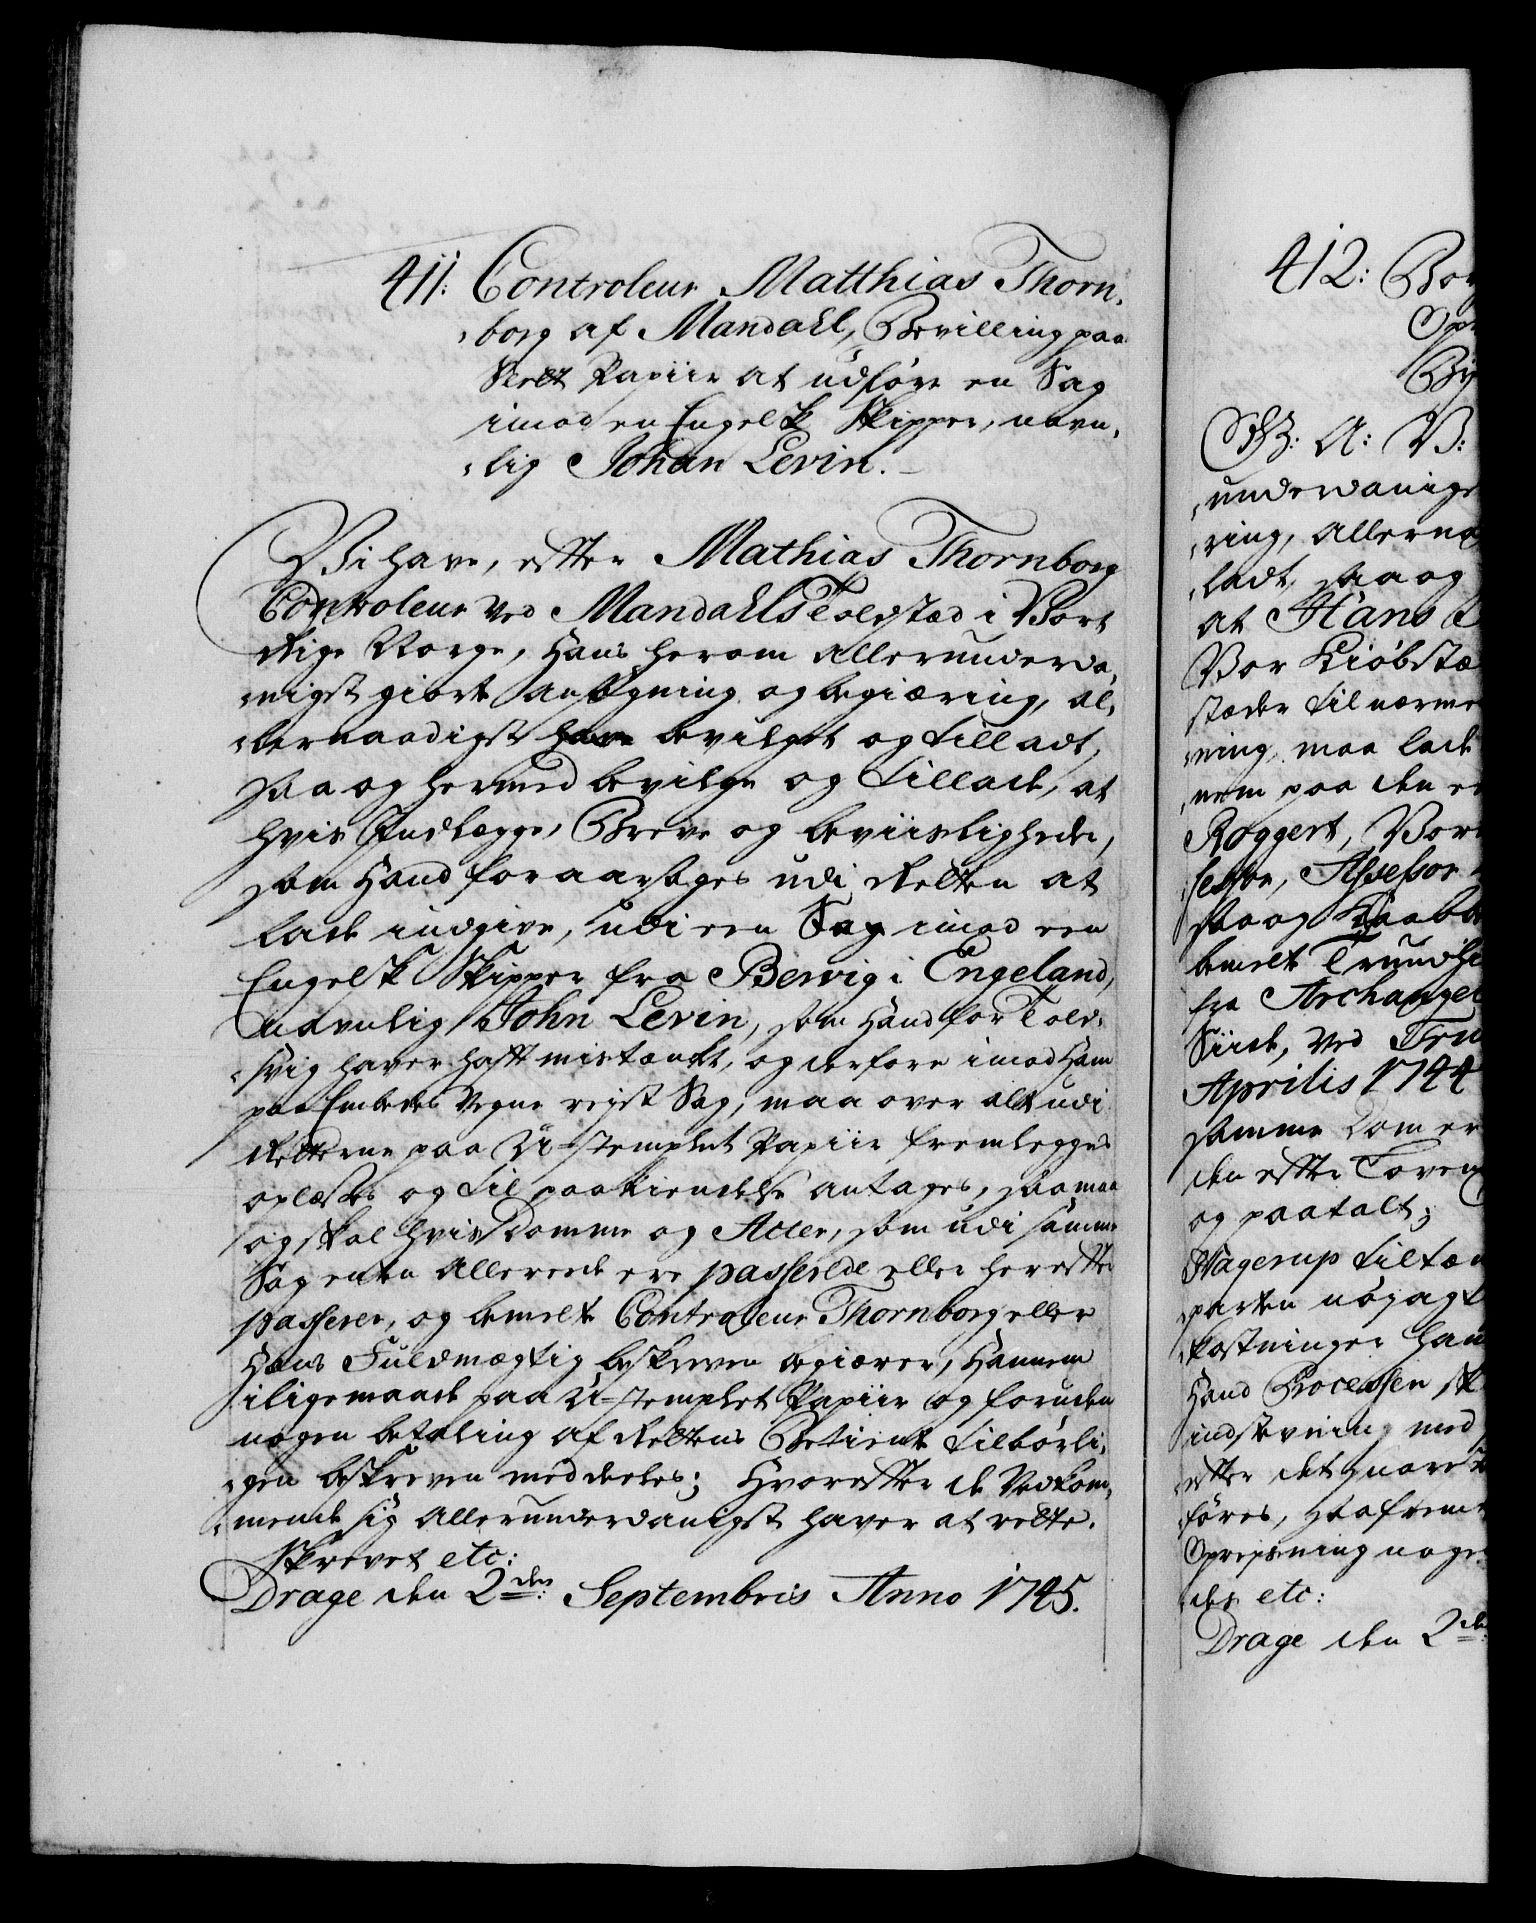 411: Controleur Matthias Thorn-
borg af Mandahl, Bevilling paa
Slett Papiir at udføre en Sag
imod en Engelsk Skipper, navn-
lig Johan Levin.
Vi have, efter Mathias Thornborg
Controleur ved Mandahls Toldsted i Vort
Rige Norge, Hans herom allerunderda-
nigst giorte Ansøgning og begiæring, al-
lernaadigst have bevilget og tilladt,
saa og hermed bevilge og tillade, at
hvis Indlægge, Breve og beviisligheder,
som Hand foraarsages udi Retten at
lade indgive, udi een Sag imod een
Engelsk Skipper fra Bervig i Engeland,
navnlig John Levin, som Hand for Told-
svig haver hafft mistænkt, og derfore imod Ham
paa Embeds Vegne reist Sag, maa over alt udi
Retterne paa U-stemplet Papiir fremlegges
oplæses og til paakiendelse antages, saa maa
og skal hvis Domme og Acter, som udi samme
Sag enten allerede ere passerede eller herefter
passerer, og bemelte Controleur Thornborg eller
Hans Fuldmægtig beskreven begiærer, Hannem
iligemaade paa U-stemplet Papiir og foruden
nogen betaling af Rettens Betiente tilbørli-
gen beskreven meddeeles; Hvorefter de Vedkom-
mende sig allerunderdanigst haver at rette.
Skrevet etc:
Drage den 2den: Septembris Anno 1745.
412:
A: V:
underdanigst
ring, allerna
ladt, saa og
at Hans
Vor Kiøbstæ
stæder til nærme
ning, maa lade
nem paa den
Roggert, Vor
Assessor
saa og
bemelte Trundhi
fra Archangel
ved
Aprilis 1744
samme Dom er
den efter Loven
og paatalt;
Hagerup tiltæn
parten nøjagt
kostninger han
Hand Processen sk
indstevning med
efter det
føres,
Opreisning noge
des etc:
Drage den 2de: